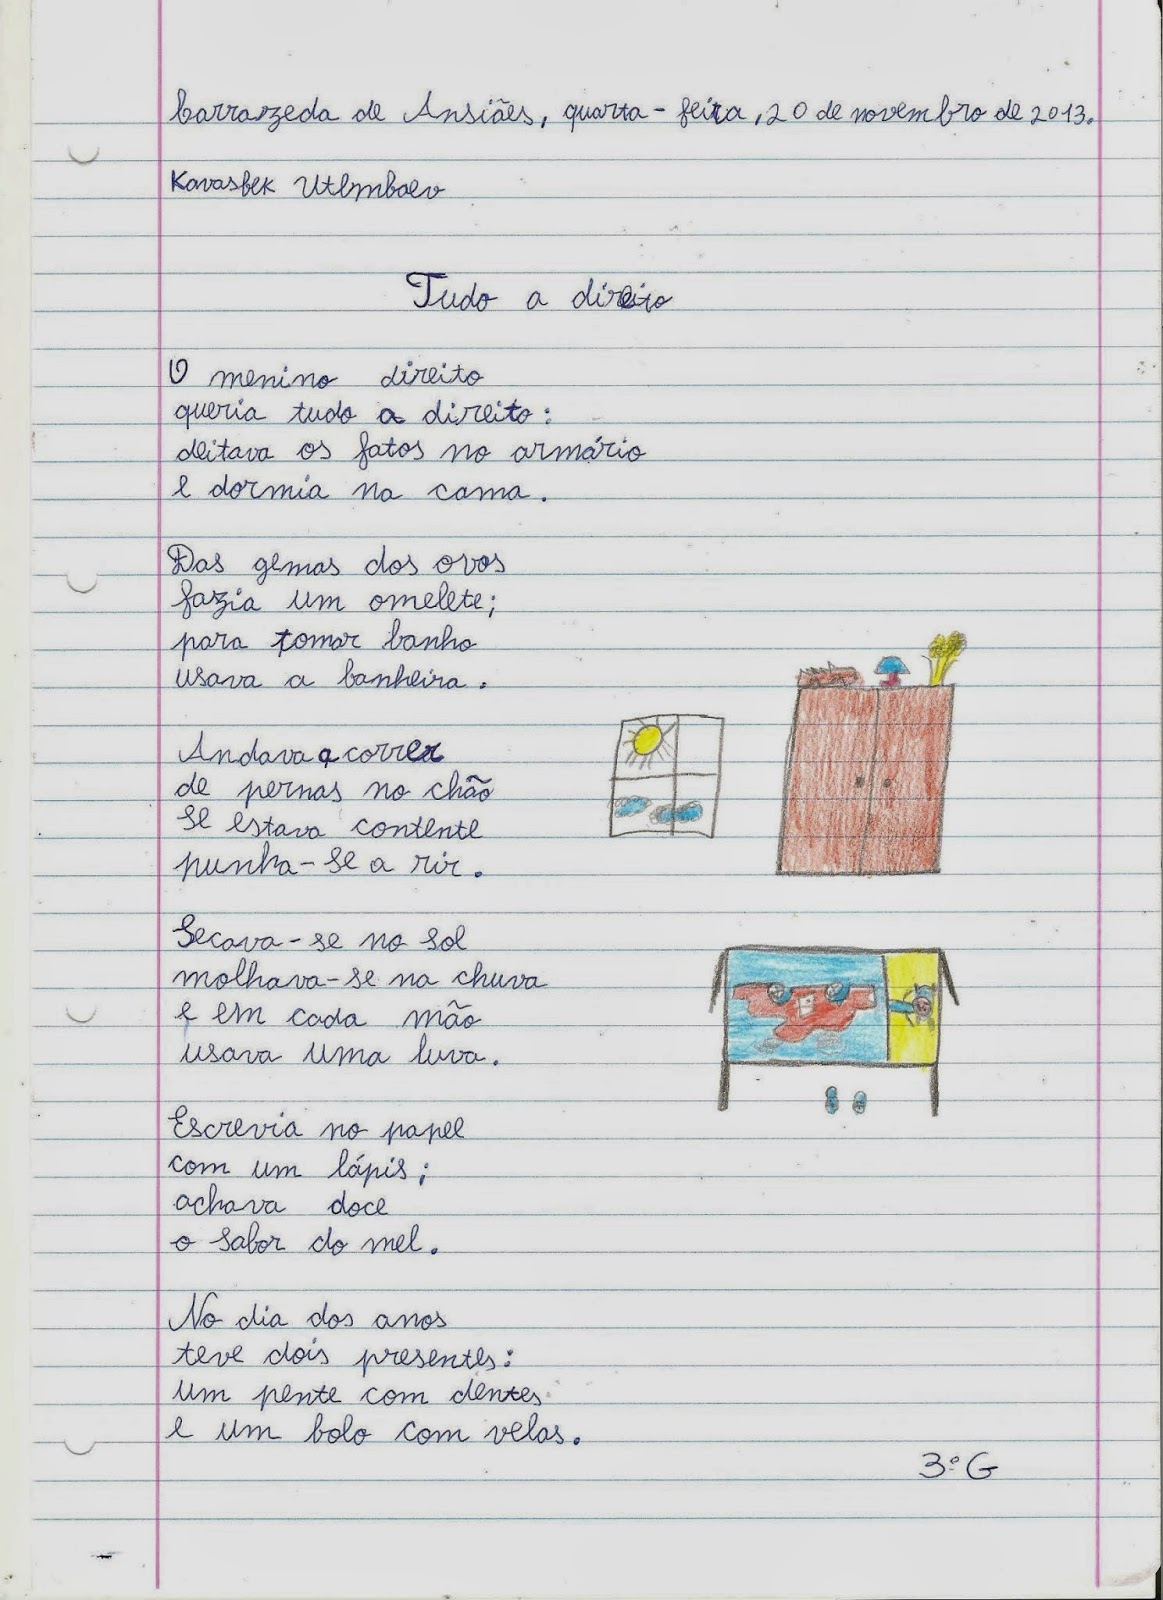 Carrazeda de Ansiães, quarta-feira, 20 de novembro de 2013.
Kavasbek Utlmbaev
Tudo a direito
O menino direito
queria tudo a direito:
deitava os fatos no armário
e dormia na cama.
Das gemas dos ovos
fazia um omelete;
para tomar banho
usava a banheira.
Andava a correr
de pernas no chão
se estava contente
punha-se a rir.
Secava-se no sol
molhava-se na chuva
e em cada mão
usava uma luva.
Escrevia no papel
com um lápis;
achava doce
o sabor do mel.
No dia dos anos
teve dois presentes:
um pente com dentes
e um bolo com velas.
3.º G